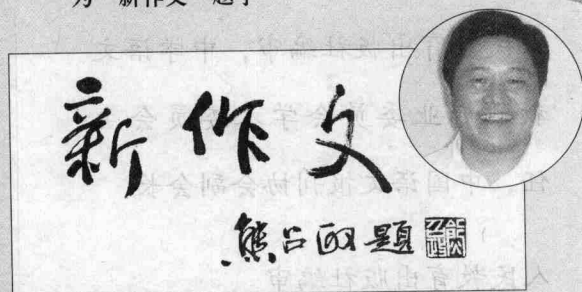 为 新作文 题字
新作文
熊召政题